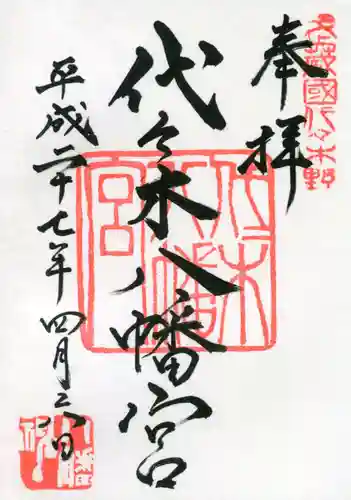 奉拝
武蔵國代々木野
代々木八幡宮
代々木八幡宮
平成二十七年四月六日